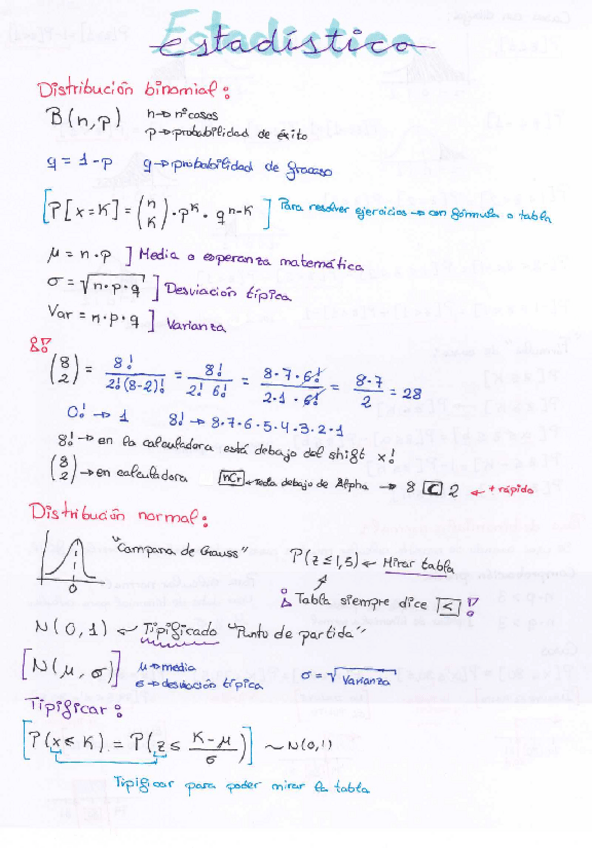 Estadística
estadístico
Distribución binomial:
B(n,p) n→nºcasos
p→probabilidad de éxito
q = 1-p q→probabilidad de fracaso
[P[x=K] = (n K) · p^K · q^n-K] Para resolver ejercicios → con fórmula o tabla
μ = n·p ] Media o esperanza matemática
σ = √n·p·q ] Desviación típica
Var = n·p·q ] Varianza
(8 2) = 8!/2!(8-2)! = 8!/2! 6! = 8·7·6!/2·1·6! = 8·7/2 = 28
0! → 1 8! → 8·7·6·5·4·3·2·1
8! → en la calculadora está debajo del shift x!
(8 2) → en calculadora nCr → tecla debajo de Alpha → 8 C 2 ← + rápido
Distribución normal:
"Campana de Gauss" P(z≤1,5) ← Mirar tabla
0
¡Tabla siempre dice ≤!
N(0,1) ← Tipificado "Punto de partida"
[N(μ,σ)] μ→media
σ→desviación típica σ=√Varianza
Tipificar:
[P(x≤K) = P(z≤ K-μ/σ)] ~N(0,1)
Tipificar para poder mirar la tabla